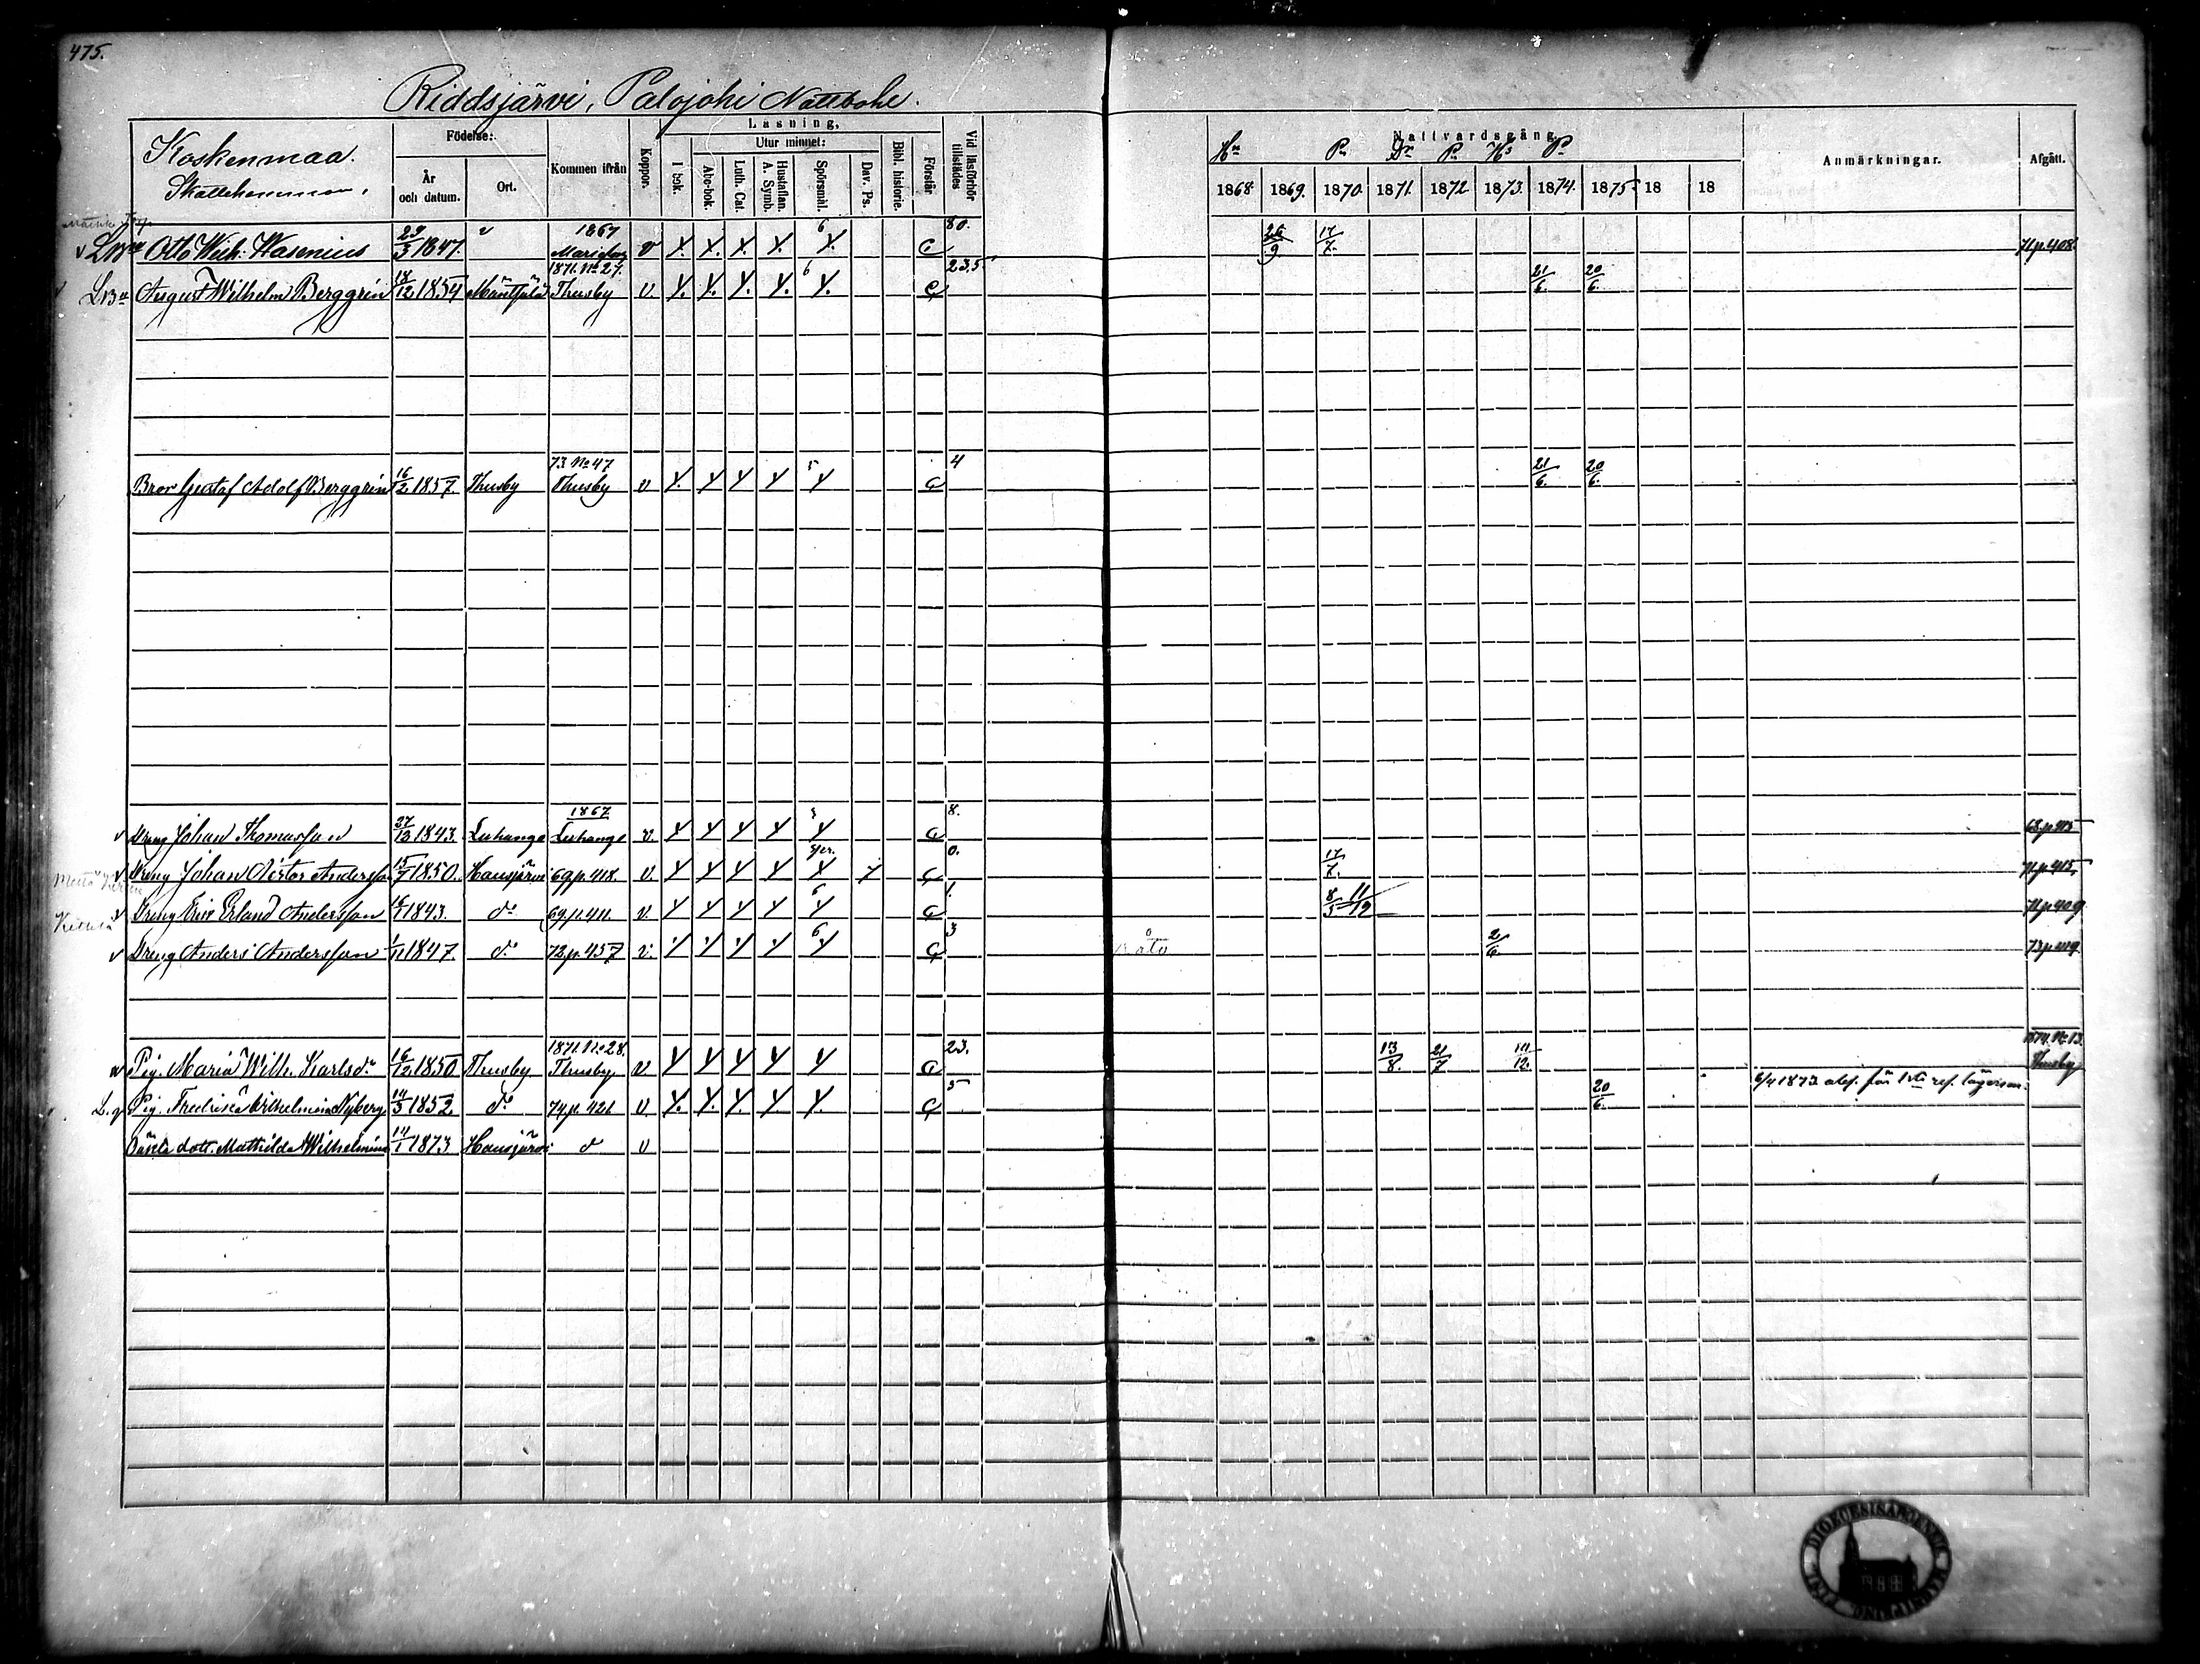 475.
Riddsjärvi, Palojoki Nattbohl.
Koskenmaa.
Skattehemman,
Födelse:
År och datum.
Ort.
Kommen ifrån
Koppor.
Läsning,
I bok.
Utur minnet:
Abc-bok.
Luth. Cat.
Hustaflan. A. Symb.
Spörsmål.
Dav. Ps.
Bibl. historie.
Förstår
Vid läsförhör tillstädes
Nattvardsgång.
1868. 1869. 1870. 1871. 1872. 1873. 1874. 1875. 18 18
Anmärkningar.
Afgått.
Otto Wilh. Wasenius 29/3 1847. 1867 v 6 80. 17/7. 71.p.408.
August Wilhelm Berggrén 18/12 1854 Mäntsälä 1871. No 27. Thusby v. 6 23.5 21/6. 20/6.
Bror Gustaf Adolf Berggrén 16/2 1857. Thusby 73. No 47 Thusby v 5 4 21/6. 20/6.
Dreng Johan Thomasson 27/12 1843. Luhango 1867 Luhango v. 8. 68.p.415
Dreng Johan Victor Andersson 15/7 1850. Hausjärvi 69.p.418. v. 0. 17/7. 71.p.415.
Dreng Eric Erland Andersson 1843. do 69.p.411. v. 6 1. 8/5 11/12 71.p.409
Dreng Anders Andersson 1/11 1847. do 72.p.457 v. 6 3 2/6. 73.p.419
Pig. Maria Wilh. Karlsdr 16/12 1850. Thusby 1871. No 28. Thusby v 23. 13/8. 21/7 14/12. 1874. No 13. Thusby
Pig. Fredrika Wilhelmina Nyberg 14/3 1852. do 74.p.421 v. 5 20/6. 6/4 1873 för 1sta
Oäkta dott. Mathilda Wilhelmina 14/1 1873. Hausjärvi d v